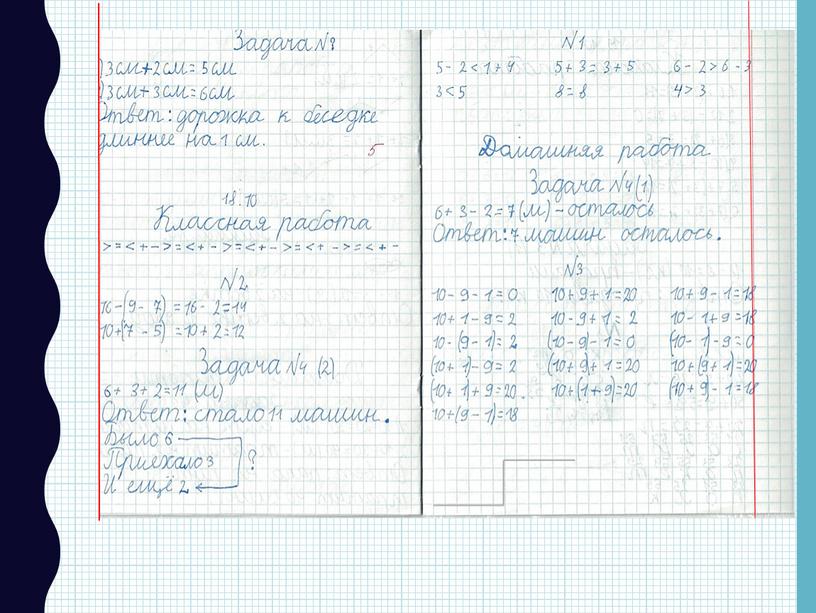 Задача №8
1)3см+2см=5см
2)3см+3см=6см
Ответ: дорожка к беседке
длиннее на 1 см.
5
18.10
Классная работа
>=<+->=<+->=<+->=<+->=<+-
№2
16-(9-7)=16-2=14
10+(7-5)=10+2=12
Задача №4 (2)
6+3+2=11 (м)
Ответ: стало 11 машин.
Было 6
Приехало 3 ?
И ещё 2
№1
5-2<1+4 5+3=3+5 6-2>6-3
3<5 8=8 4>3
Домашняя работа
Задача №4(1)
6+3-2=7(м)-осталось
Ответ: 7 машин осталось.
№3
10-9-1=0 10+9+1=20 10+9-1=18
10+1-9=2 10-9+1=2 10-1+9=18
10-(9-1)=2 (10-9)-1=0 (10-1)-9=0
(10+1)-9=2 (10+9)+1=20 10+(9+1)=20
(10+1)+9=20. 10+(1+9)=20 (10+9)-1=18
10+(9-1)=18